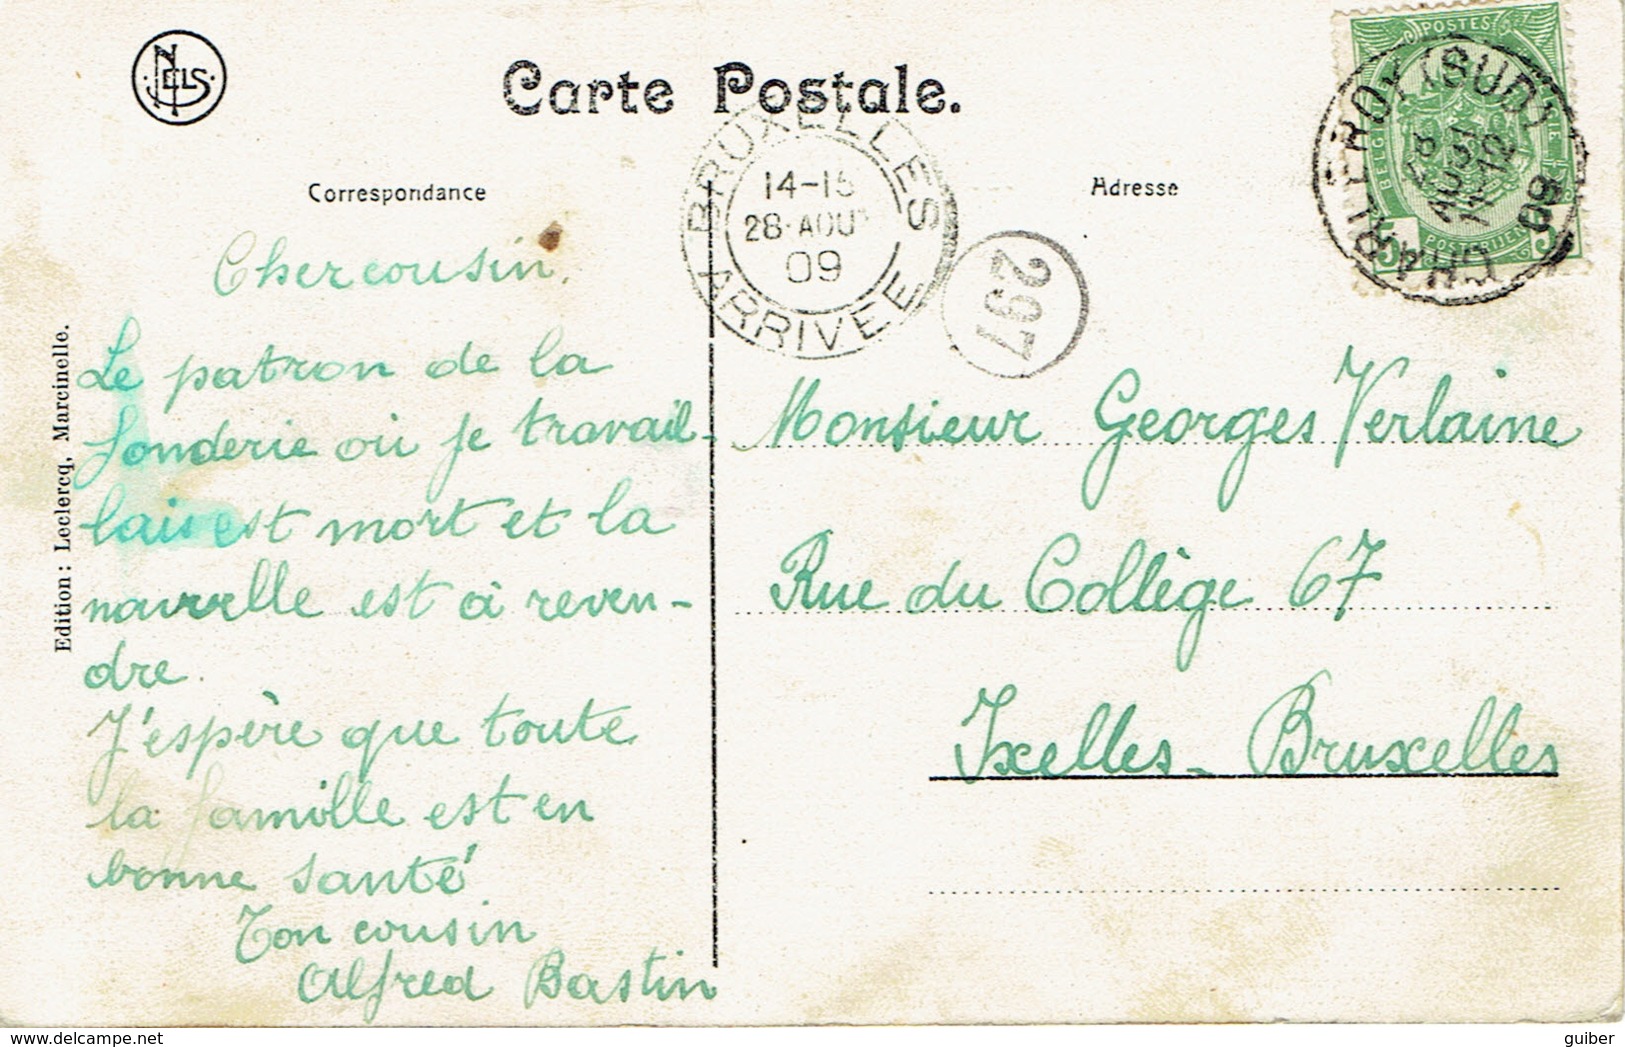 NELS
Carte Postale.
Correspondance
Adresse
BRUXELLES
14-15
28 AOUT
09
ARRIVEE
297
CHARLEROY (SUD)
28 AOUT
11-12
09
POSTES
BELGI
POSTERIJEN
5 5
Edition : Leclercq, Marcinelle.
Cher cousin,
Le patron de la
fonderie où je travail-
lais est mort et la
nouvelle est à reven-
dre.
J'espère que toute
la famille est en
bonne santé
Ton cousin
Alfred Bastin
Monsieur Georges Verlaine
Rue du Collège 67
Ixelles - Bruxelles
https://www.delcampe.net
guiber